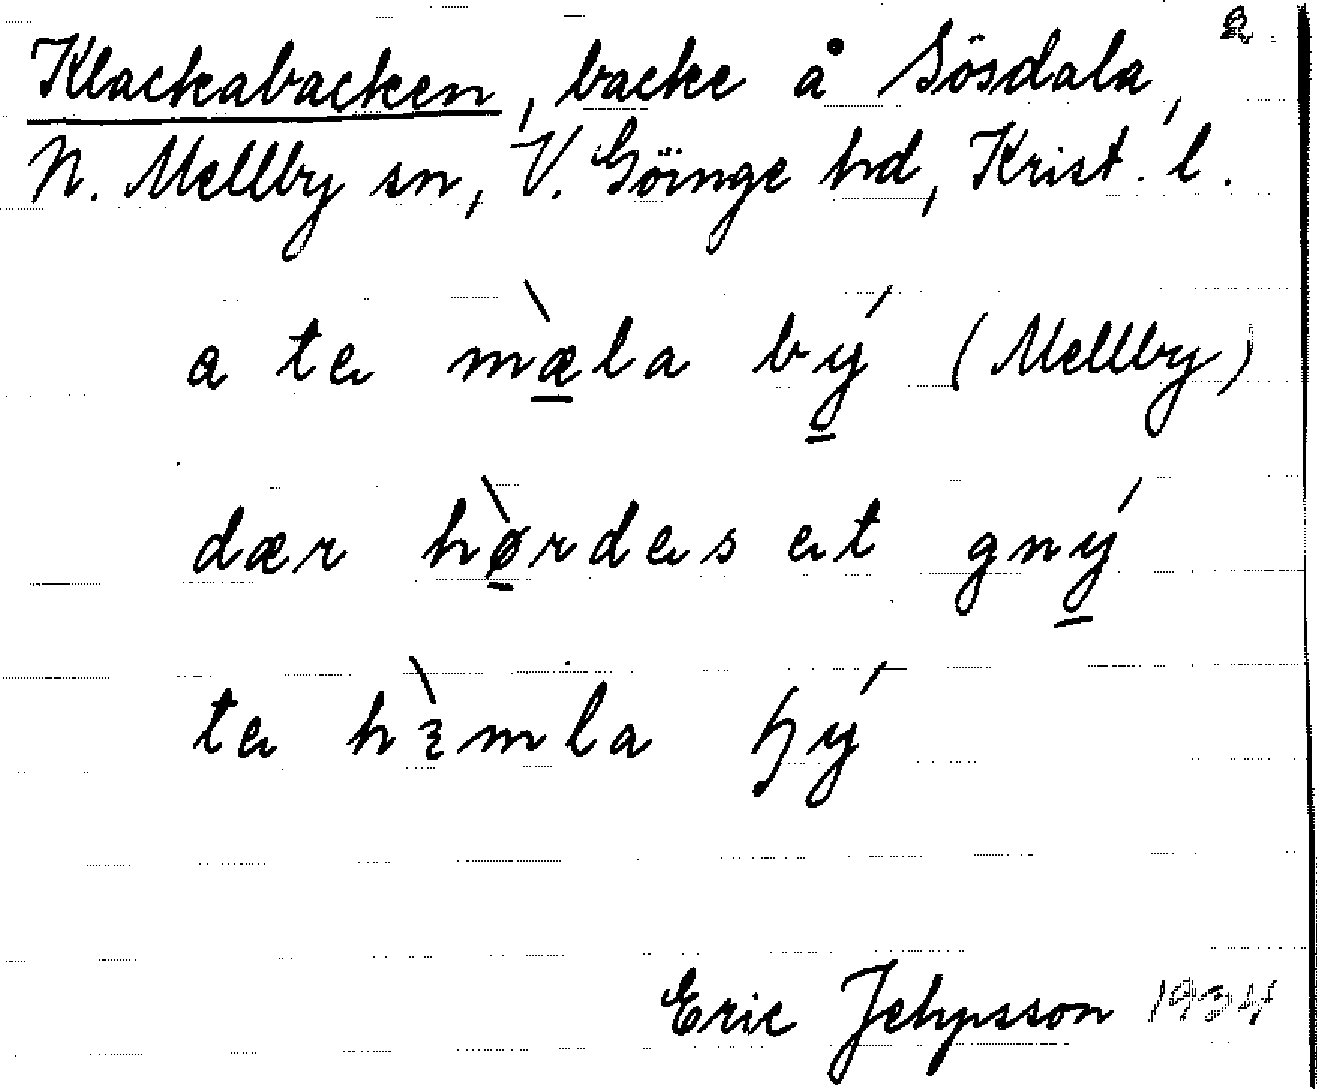 2.
Klackabacken, backe å Sösdala,
N. Mellby sn, V. Göinge hd, Krist. l.
a te mæ̠̀la bý̠ (Mellby)
dær hø̠̀rdes et gný̠
te hɛ̀mla ꜧý
Eric Jehpsson 1934